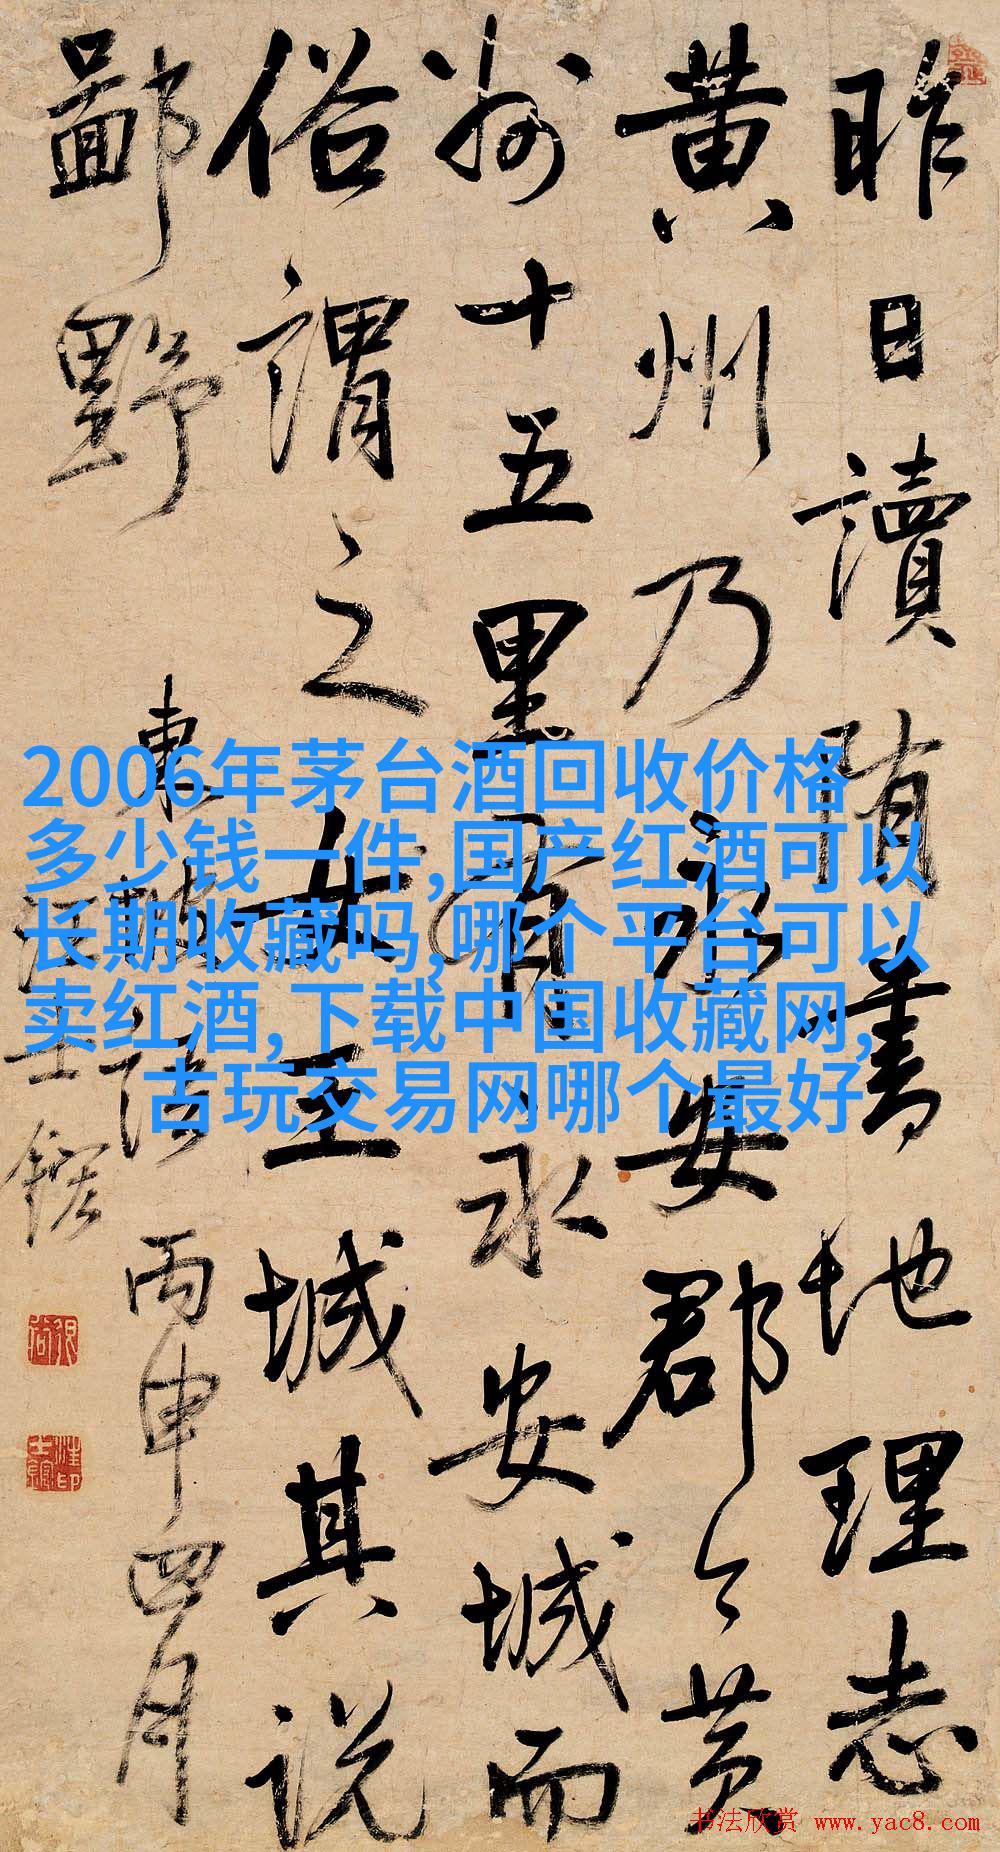 昨日讀隋書地理志
黄州乃永安郡今黄
州十五里有永安城而
俗謂之女王城其說
鄙野
東坡語 丙申四月
汪士鋐
2006年茅台酒回收价格
多少钱一件,国产红酒可以
长期收藏吗,哪个平台可以
卖红酒,下载中国收藏网,
古玩交易网哪个最好
书法欣赏 www.yac8.com